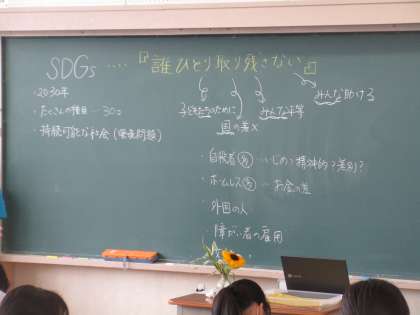 SDGs ････『誰ひとり取り残さない』
・2030年
・たくさんの種目 ― 30コ
・持続可能な社会(環境問題)
子どもたちのために
国の差×
みんな平等
みんな助ける
・自殺者㊙ … いじめ?精神的?差別?
・ホームレス … お金の差
・外国の人
・障がい者の雇用